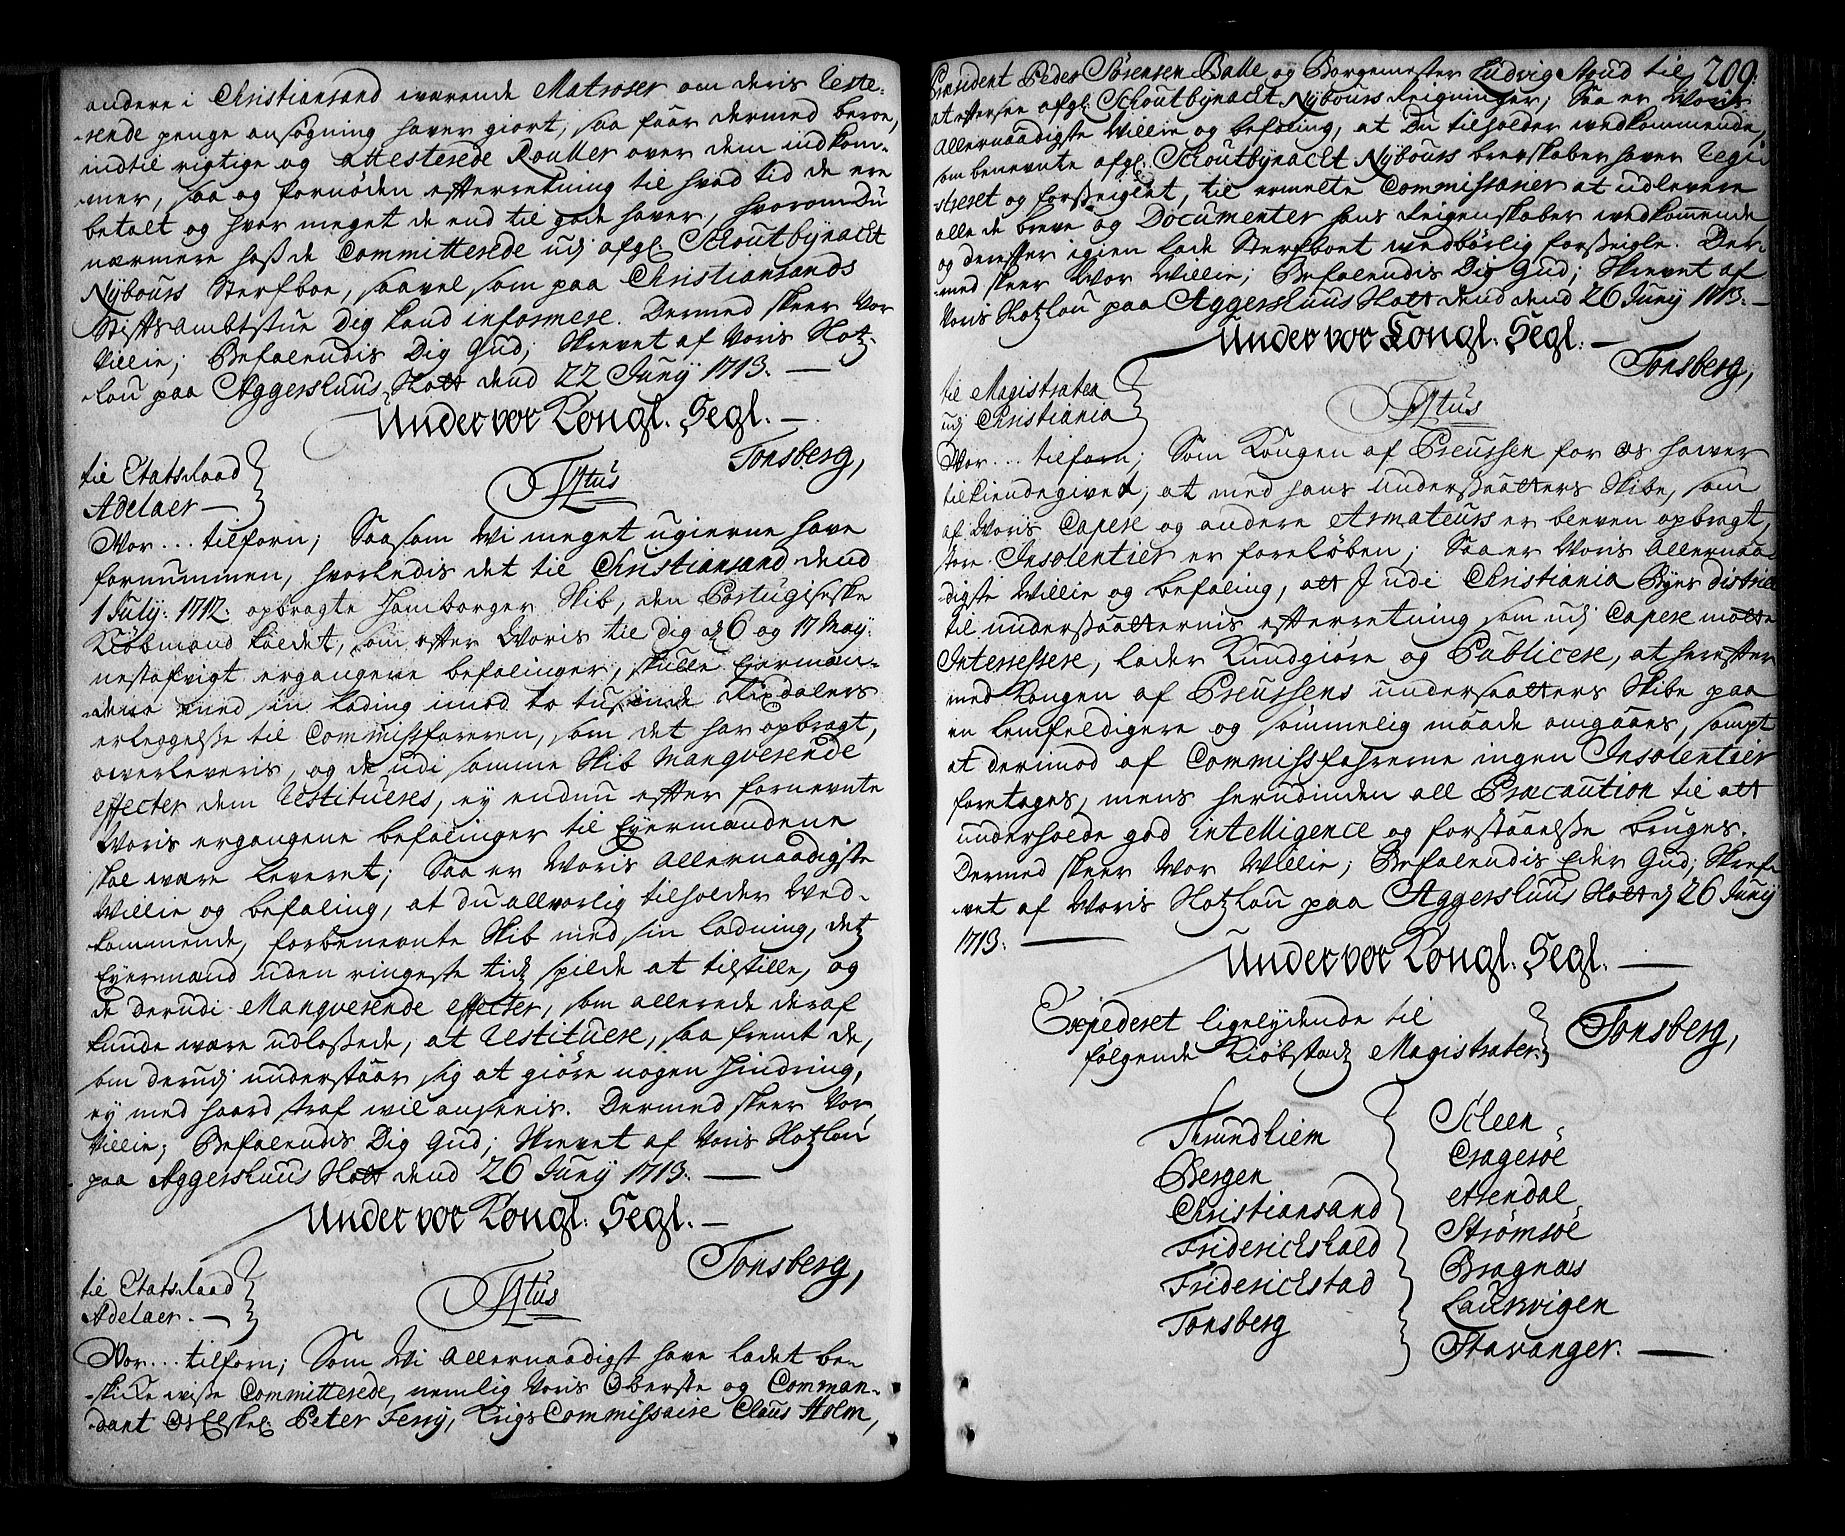 andere i Christiansand wærende Matroser om deris Reste-
rende penge ansøgning haver giort, saa faar dermed beroe,
indtil rigtige og attesterede Roller over dem indkom-
mer, saa og fornøden efterretning til hvad tid de ere
betalt og hvor meget de end til gode haver, hvorom Du
nærmere hos de Committerede udj afgl. Schoutbynacht
Nÿbours Sterfboe, saavel som paa Christiansands
Stiftsambtstue Dig kand informere. Dermed skeer Vor
Villie; Befalendis Dig Gud; Skrevet af Voris Slotz-
lou paa Aggershuus Slott dend 22 Junÿ 1713. —
Under vor Kongl. Segl. —
Tonsberg,
til Etatsraad
Adelaer —
Titus
Vor... tilforn; Saasom Wi meget ugierne have
fornummen, hvorledis det til Christiansand dend
1 July: 1712. opbragte Hamborger Skib, den Portugisiske
Kiøbmand kaldet, som efter Voris til dig af 6 og 17 May:
nestafvigt ergangene befalinger, skulle Eyermæn-
dene med sin Lading imod to tusinde Rixdalers
erleggelse til Commissfareren, som det har opbragt,
overleveris, og de udi samme Skib Manqverende
effecter dem Restitueres, ey endnu efter fornevnte
Voris ergangene befalinger til Eyermændene
skal være leveret; Saa er Voris Allernaadigste
Villie og befaling, at du allvorlig tilholder Ved-
kommende, forbenevnte Skib med sin ladning, detz
Eyermænd uden ringeste tidz spilde at tilstille, og
de derudi Manqverende effecter, som allerede deraf
kunde være udlossede, at Restituere, saa fremt de,
som derudj understaar sig at giøre nogen Hindring,
ey med haard straf vil ansees. Dermed skeer Vor
Villie; Befalendis Dig Gud; Skrevet af Voris Slotzlou
paa Aggershuus Slott dend 26 Junÿ 1713. —
Under vor Kongl. Segl. —
Tonsberg,
til Etatsraad
Adelaer. —
Titus
Vor... tilforn; Som Wi Allernaadigst have ladet be-
skicke visse Committerede, nemlig Voris Oberste og Comman-
dant Os Elskel: Peter Ferrÿ, Krigs Commissaire Claus Holm,
209.
Præsident Peder Sørensen Balle og Borgemester Ludvig Stud til
at eftersee afgl. Schoutbynacht Nÿbours Reigninger; Saa er Voris
Allernaadigste Villie og befaling, at Du tilholder vedkommende,
som benevnte afgl. Schoutbynacht Nÿbours brevskaber haver Regi-
streret og forseiglet, til ermelte Commissarier at udlevere
alle de breve og Documenter hans Reigenskaber vedkommende
og derefter igien lade Sterfboet wedbørlig forseigle. Der-
med skeer Vor Villie; Befalendis Dig Gud; Skrevet af
Voris Slotzlou paa Aggershuus Slott dend 26 Junÿ 1713. —
Under vor Kongl. Segl. —
Tonsberg,
til Magistraten
udj Christiania
Titus
Vor... tilforn; Som Kongen af Preussen for os haver
tilkiendegivet, at med hans undersaatters Skibe, som
af Voris Capere og andere Armateurs er bleven opbragt,
store Insolentier er foreløben; Saa er Voris Allernaa-
digste Villie og befaling, att I udi Christiania Byes district
til undersaatternis efterretning som udj Capere motte
Interessere, lader Kundgiøre og Publicere, at herefter
med Kongen af Preussens undersaatters Skibe paa
en lemfeldigere og sømmelig maade omgaaes, sampt
at derimod af Commissfahrerne ingen Insolentier
foretages, mens herudinden all Præcaution til att
underholde god intelligence og forstaaelse bruges.
Dermed skeer Vor Villie; Befalendis Eder Gud; Skre-
vet af Voris Slotzlou paa Aggershuus Slott dj 26 Junÿ
1713. —
Under vor Kongl. Segl. —
Expederet ligelydende til
følgende Kiøbstædz Magistrater.
Tonsberg,
Trundhiem
Bergen
Christiansand
Friderichshald
Friderichstad
Tonsberg
Scheen
Cragerøe
Arendal
Strømsøe
Bragnæs
Laurwigen
Stavanger. —